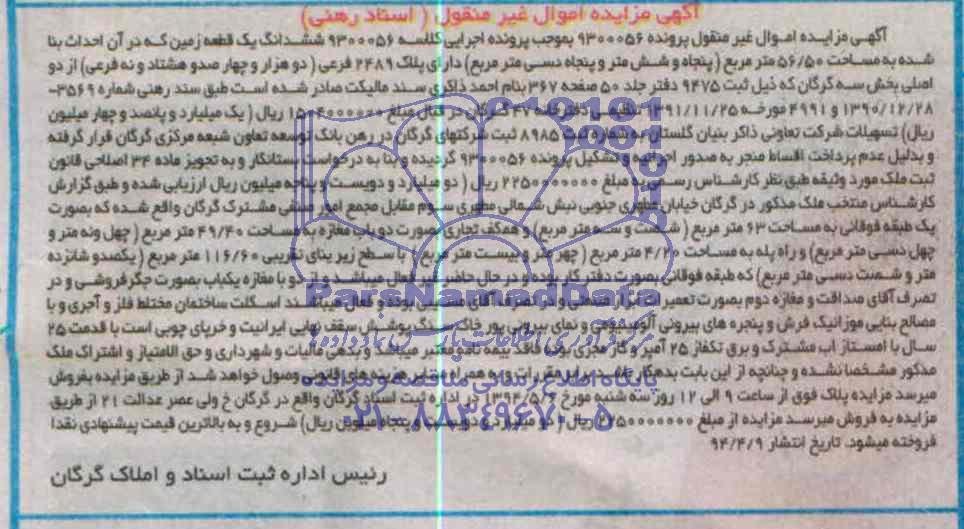 آگهی مزایده اموال غیر منقول ( اسناد رهنی)
آگهی مزایده اموال غیر منقول پرونده ۹۳۰۰۰۵۶ بموجب پرونده اجرایی کلاسه ۹۳۰۰۰۵۶ ششدانگ یک قطعه زمین که در آن احداث بنا
شده به مساحت ۵۶/۵۰ متر مربع ( پنجاه و شش متر و پنجاه دسی متر مربع) دارای پلاک ۲۴۸۹ فرعی ( دو هزار و چهار صدو هشتاد و نه فرعی) از دو
اصلی بخش سه گرگان که ذیل ثبت ۹۴۷۵ دفتر جلد ۵۰ صفحه ۳۶۷ بنام احمد ذاکری سند مالیکت صادر شده است طبق سند رهنی شماره ۳۵۶۹-
۱۳۹۰/۱۲/۲۸ و ۴۹۹۱ مورخه ۱۳۹۱/۱۱/۲۵ تنظیمی دفترخانه ۴۷ گرگان در قبال مبلغ ۱۵۰۴۰۰۰۰۰۰ ریال ( یک میلیارد و پانصد و چهار میلیون
ریال) تسهیلات شرکت تعاونی ذاکر بنیان گلستان به شماره ثبت ۸۹۸۵ ثبت شرکتهای گرگان در رهن بانک توسعه تعاون شعبه مرکزی گرگان قرار گرفته
و بدلیل عدم پرداخت اقساط منجر به صدور اجرائیه و تشکیل پرونده ۹۳۰۰۰۵۶ گردیده و بنا به درخواست بستانکار و به تجویز ماده ۳۴ اصلاحی قانون
ثبت ملک مورد وثیقه طبق نظر کارشناس رسمی به مبلغ ۲۲۵۰۰۰۰۰۰۰ ریال ( دو میلیارد و دویست و پنجاه میلیون ریال ارزیابی شده و طبق گزارش
کارشناس منتخب ملک مذکور در گرگان خیابان مطهری جنوبی نبش شمالی مطهری سوم مقابل مجمع امور صنفی مشترک گرگان واقع شده که بصورت
یک طبقه فوقانی به مساحت ۶۳ متر مربع ( شصت و سه متر مربع) و همکف تجاری بصورت دو باب مغازه به مساحت ۴۹/۴۰ متر مربع ( چهل ونه متر و
چهل دسی متر مربع) و راه پله به مساحت ۴/۲۰ متر مربع ( چهر متر و بیست متر مربع ) با سطح زیر بنای تقریبی ۱۱۶/۶۰ متر مربع ( یکصدو شانزده
متر و شصت دسی متر مربع) که طبقه فوقانی بصورت دفتر کار بوده و در حال حاضر غیر فعال میباشد و از دو با مغازه یکباب بصورت جگرفروشی و در
تصرف آقای صداقت و مغازه دوم بصورت تعمیر ابزار صنعتی و در تصرف آقای بوده و فعال میباشند اسکلت ساختمان مختلط فلز و آجری و با
مصالح بنایی موزائیک فرش و پنجره های بیرونی آلومینیومی و نمای بیرونی پور خاک سنگ پوشش سقف نهایی ایرانیت و خرپای چوبی است با قدمت ۲۵
سال با امتیاز اب مشترک و برق تکفاز ۲۵ آمپر و گاز مجزی بوده فاقد بیمه نامه معتبر میباشد و بدهی مالیات و شهرداری و حق الامتیاز و اشتراک ملک
مذکور مشخصا نشده و چنانچه از این بابت بدهکار باشد برابر مقررات و به همراه سایر هزینه های قانونی وصول خواهد شد از طریق مزایده بفروش
میرسد مزایده پلاک فوق از ساعت ۹ الی ۱۲ روز سه شنبه مورخ ۱۳۹۴/۵/۶ در اداره ثبت اسناد گرگان واقع در گرگان خ ولی عصر عدالت ۲۱ از طریق
مزایده به فروش میرسد مزایده از مبلغ ۲۲۵۰۰۰۰۰۰۰ ریال ( دو میلیارد و دویست و پنجاه میلیون ریال) شروع و به بالاترین قیمت پیشنهادی نقدا
فروخته میشود. تاریخ انتشار ۹۴/۴/۹
رئیس اداره ثبت اسناد و املاک گرگان
ParsNamad Data
مرکز فرآوری اطلاعات پارس نماد داده ها
پایگاه اطلاع رسانی مناقصه و مزایده
۰۲۱-۸۸۳۴۹۶۷۰-۵